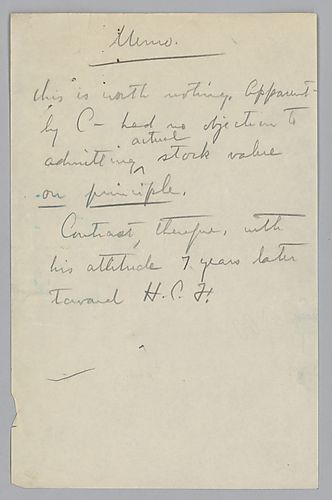 Memo.
this is worth nothing. Apparent-
ly C– had no objection to
actual
admitting stock value
on principle.
Contrast, therefore, with
his attitude 7 years later
toward H.C.F.